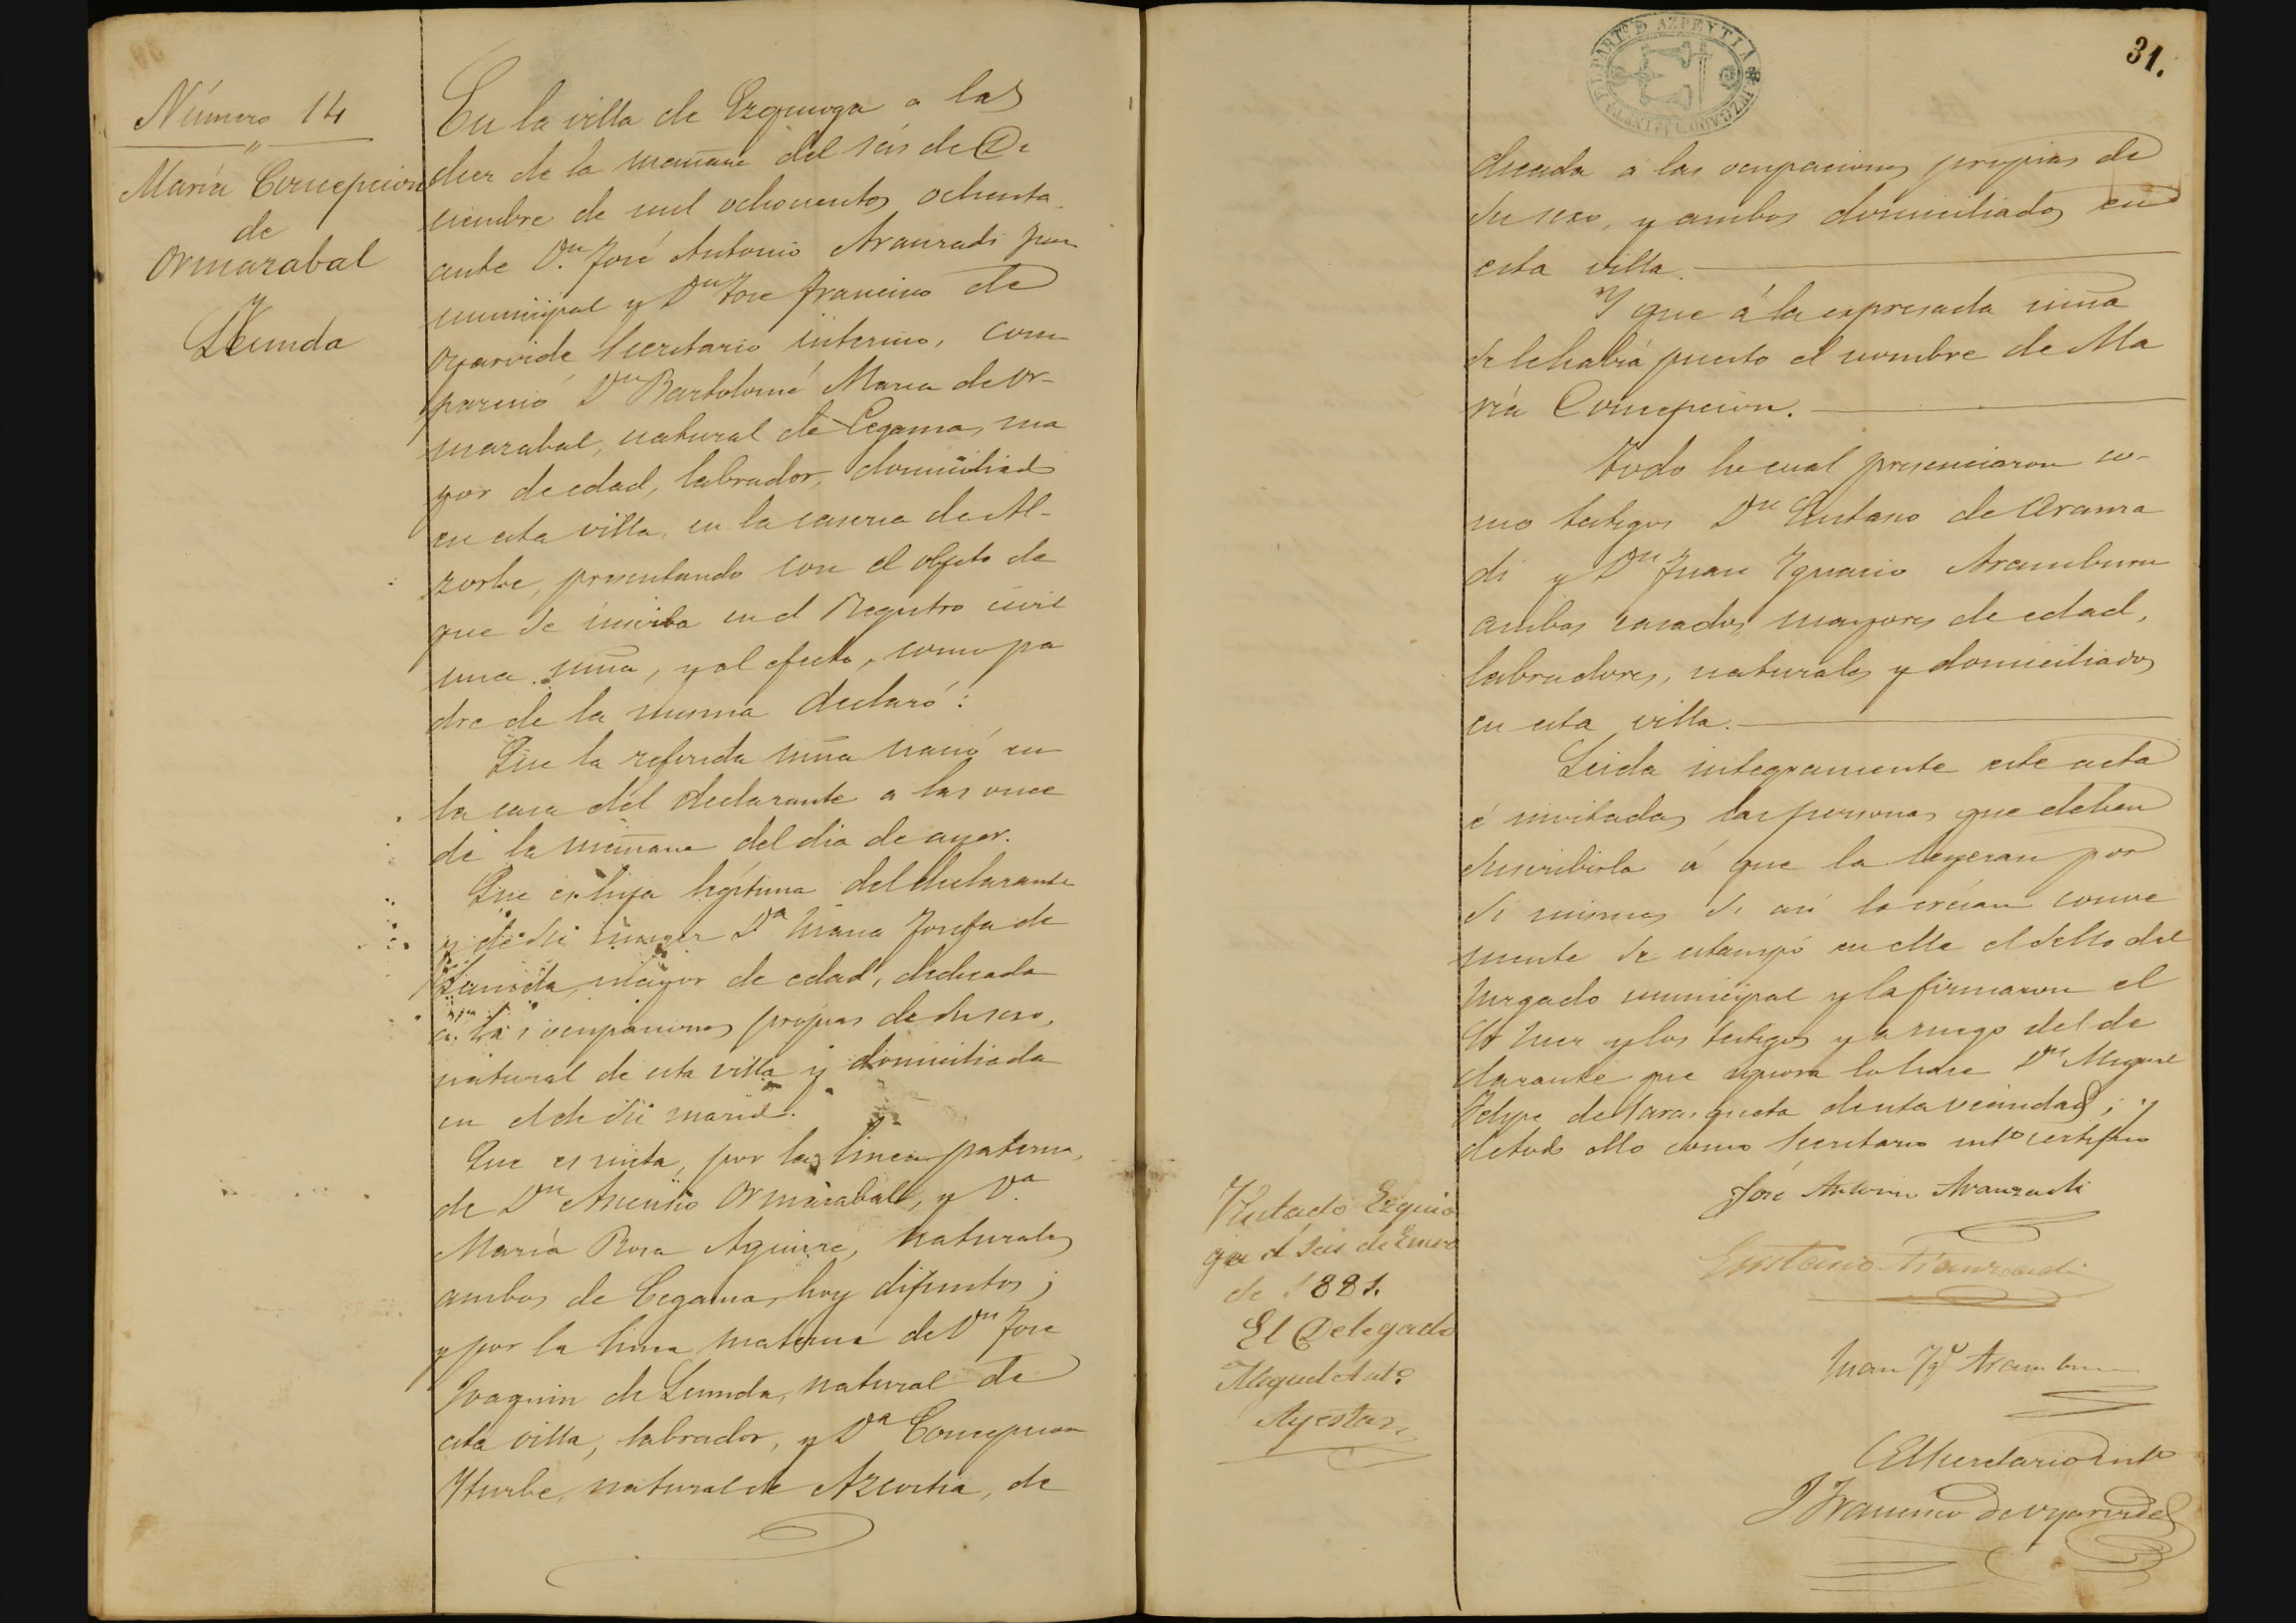 Número 14
"
María Concepcion
de
Ormazabal
y
Leunda
En la villa de Ezquioga a las
diez de la mañana del seis de Di
ciembre de mil ochocientos ochenta
ante Dn. José Antonio Aranzadi juez
municipal y Dn José Francisco de
Oyarvide Secretario interino, com
pareció Dn Bartolomé Maria de Or-
mazabal, natural de Cegama, ma
yor de edad, labrador, domiciliado
en esta villa, en la caseria de Al-
zorbe, presentando con el objeto de
que se inscriba en el Registro civil
una niña, y al efecto, como pa
dre de la misma declaró:
Que la referida niña nació en
la casa del declarante a las once
de la mañana del dia de ayer.
Que es hija legítima del declarante
y de su muger Da Maria Josefa de
Leunda, mayor de edad, dedicada
a las ocupaciones propias de su sexo,
natural de esta villa y domiciliada
en el de su marido.
Que es nieta, por la linea paterna,
de Dn Ascensio Ormazabal, y Da.
María Rosa Aguirre, naturales
ambos de Cegama, hoy difuntos;
y por la linea materna de Dn José
Joaquin de Leunda, natural de
esta villa, labrador, y Da Concepcion
Yturbe, natural de Azcoitia, de
31.
JUZGADO MUNICIPAL PART. DE AZPEYTIA
dicada á las ocupaciones propias de
su sexo, y ambos domiciliados en
esta villa.
Y que á la expresada niña
se le habia puesto el nombre de Ma
ría Concepcion.
Todo lo cual presenciaron co-
mo testigos Dn Eustasio de Aranza
di y Dn Juan Ygnacio Aramburu
ambos casados, mayores de edad,
labradores, naturales y domiciliados
en esta villa.
Leida integramente este acta
é invitadas las personas que deben
suscribirla á que la leyeran por
si mismas si asi lo creian conve
niente se estampó en ella el sello del
Juzgado municipal y la firmaron el
Sr Juez y los testigos y a ruego del de
clarante que ignora lo hace Dn Miguel
Felipe de de esta vecindad; y
de todo ello como Secretario into certifico
José Antonio Aranzadi
Eustasio Aranzadi
Juan Ygo Aramburu
El Secretario Into
J Francisco de Oyarvide
Visitado Ezquio
ga á seis de Enero
de 1881.
El Delegado
Miguel Anto.
Ayestaran